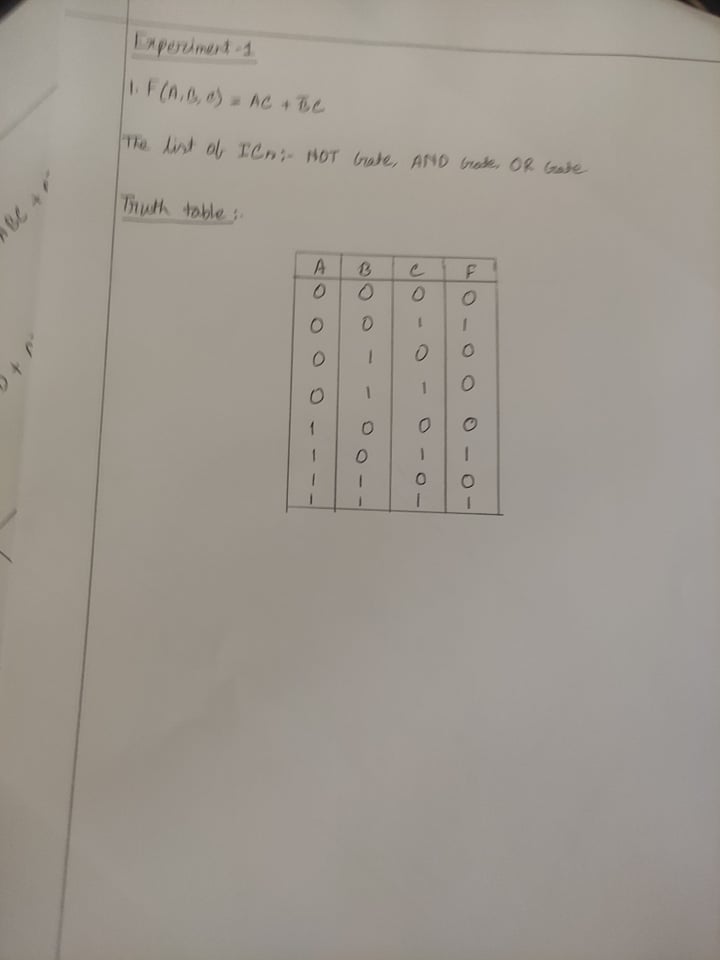 Experiment-1
1. F(A,B,C) = AC + B̅C
The list of ICs:- NOT Gate, AND Gate, OR Gate
Truth table :-
A B C F
0 0 0 0
0 0 1 1
0 1 0 0
0 1 1 0
1 0 0 0
1 0 1 1
1 1 0 0
1 1 1 1